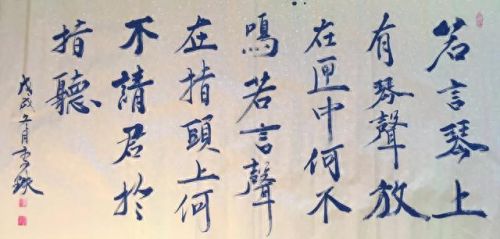 若言琴上
有琴聲放
在匣中何不
鳴若言聲
在指頭上何
不請君於
指聽
戊戌 月